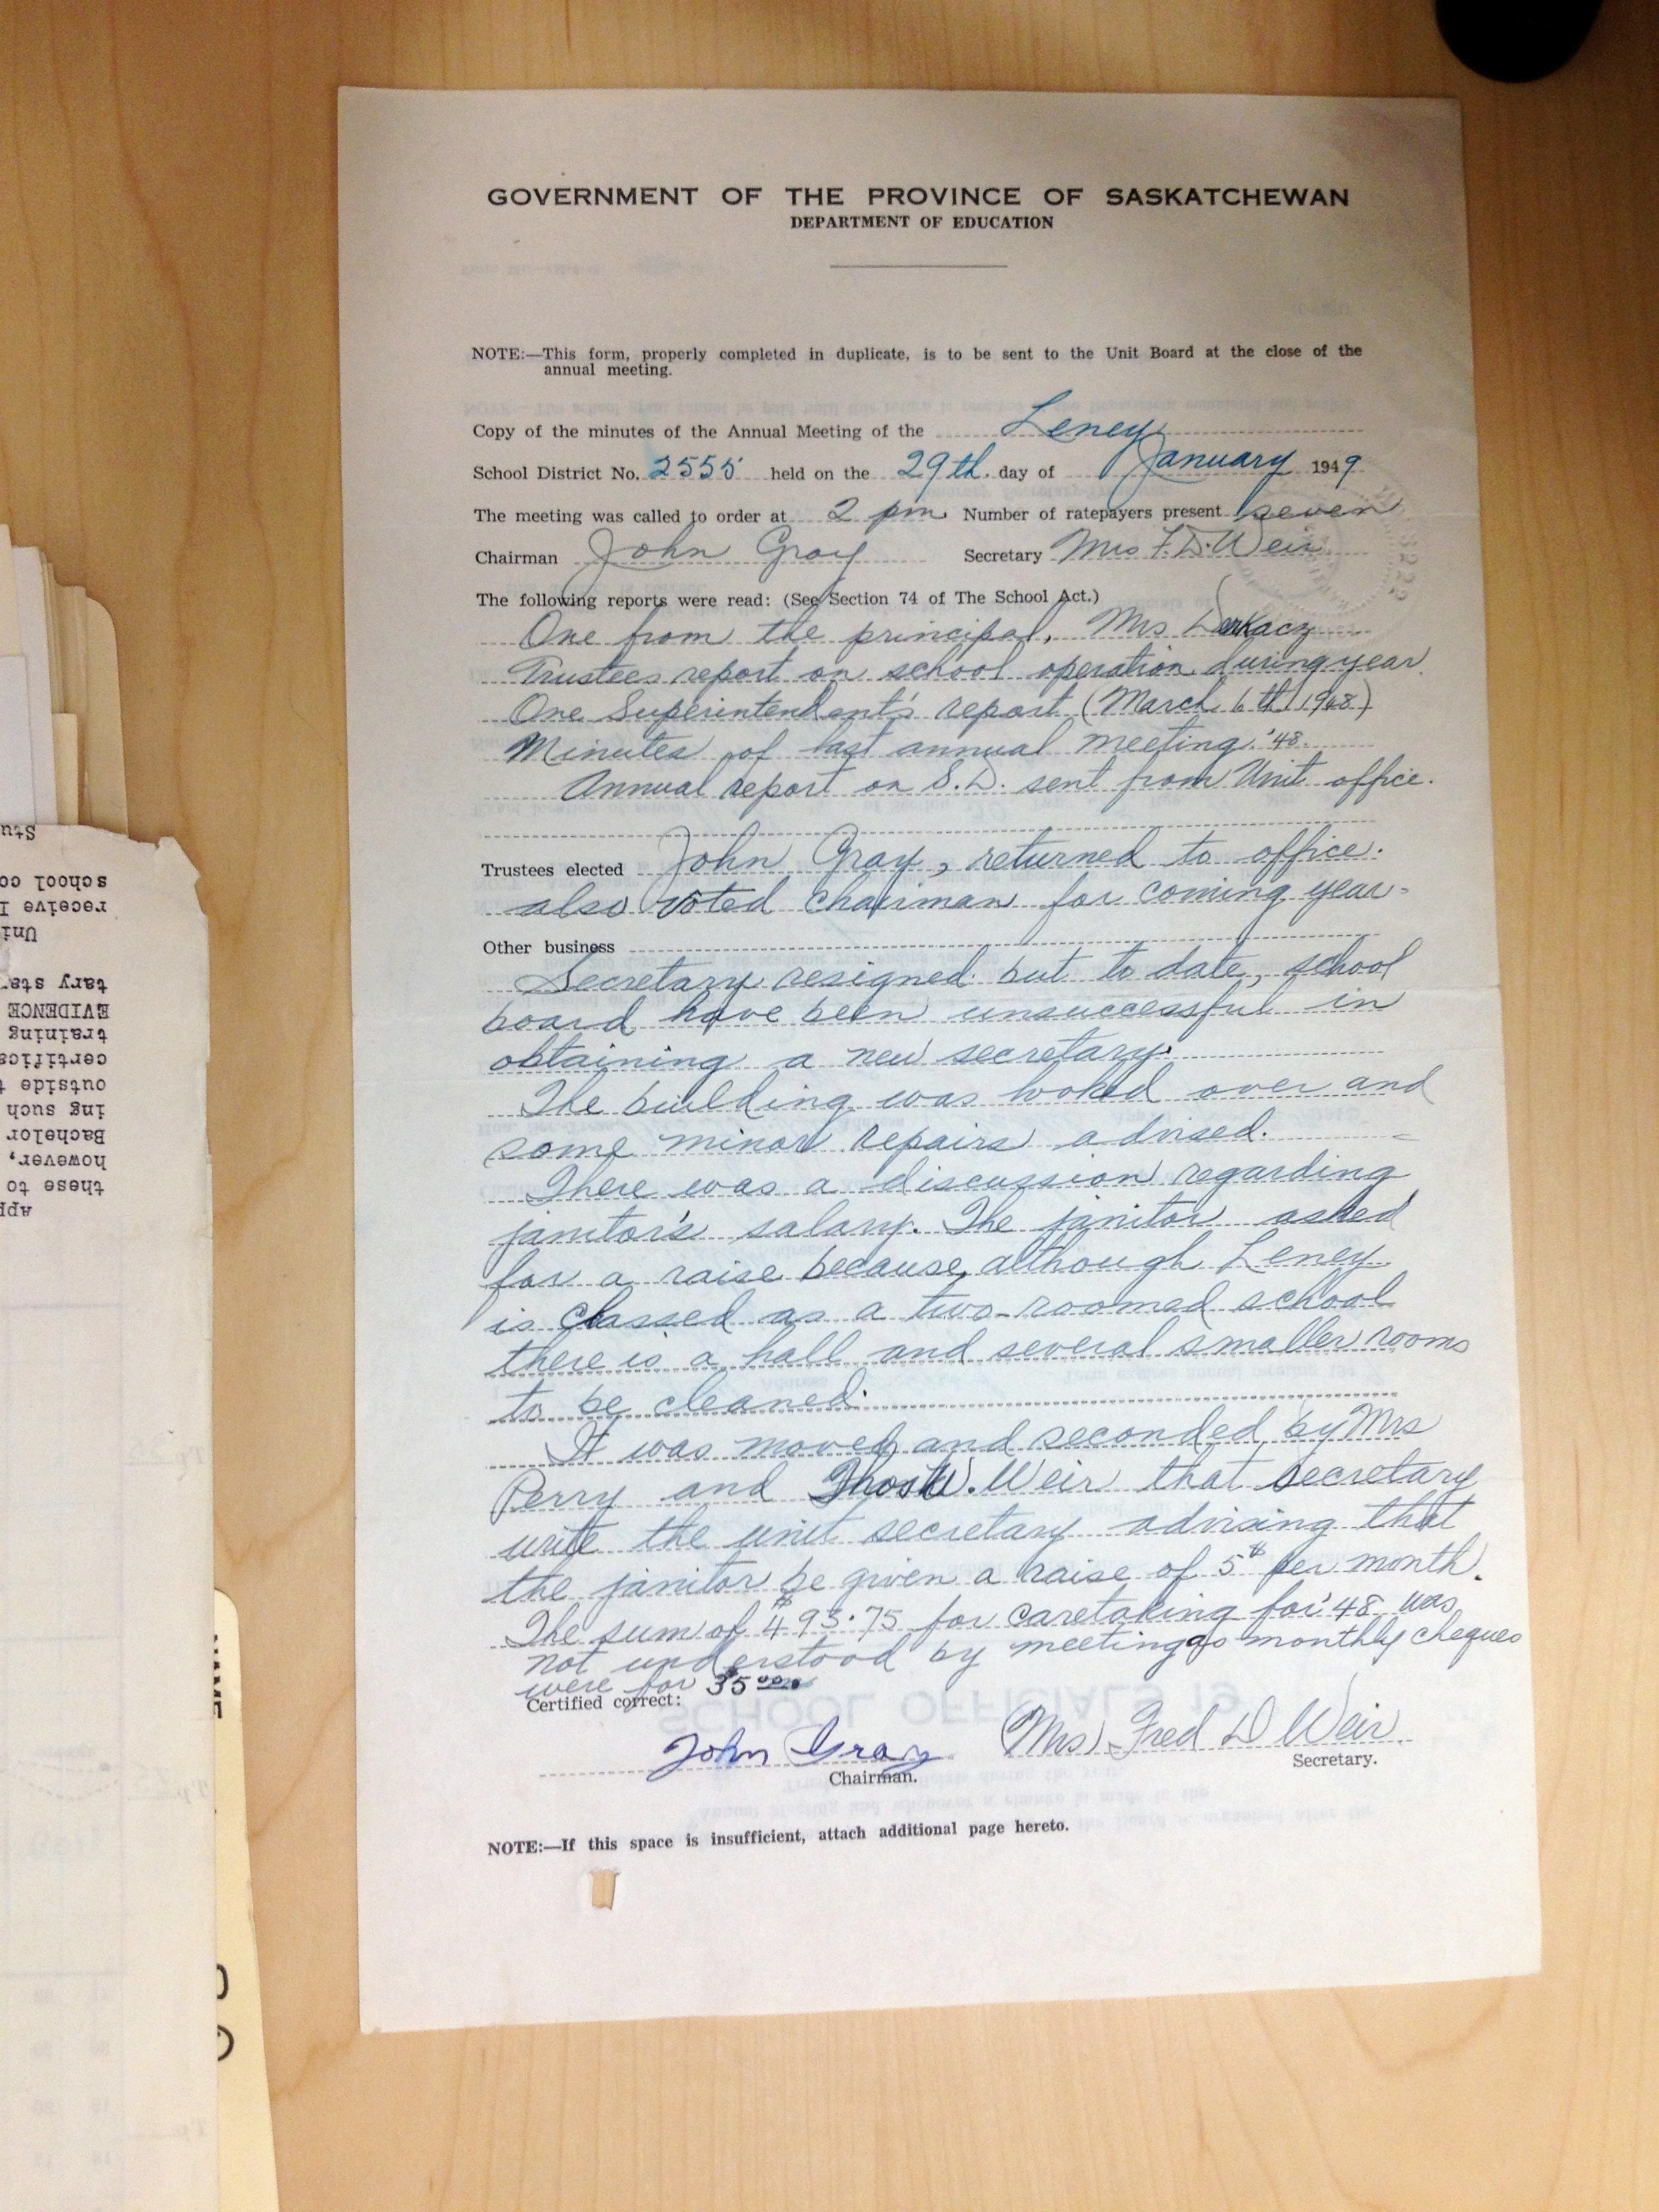 GOVERNMENT OF THE PROVINCE OF SASKATCHEWAN
DEPARTMENT OF EDUCATION
NOTE:—This form, properly completed in duplicate, is to be sent to the Unit Board at the close of the
annual meeting.
Copy of the minutes of the Annual Meeting of the Leney
School District No. 2555 held on the 29th. day of January 1949
The meeting was called to order at 2 pm Number of ratepayers present seven
Chairman John Gray Secretary Mrs F. D. Weir
The following reports were read: (See Section 74 of The School Act.)
One from the principal, Mrs Derkacz
Trustees report on school operation during year.
One Superintendent's report (March 6th 1948)
Minutes of last annual meeting '48.
Annual report on S.D. sent from Unit office.
Trustees elected John Gray, returned to office.
also voted chairman for coming year.
Other business
Secretary resigned but to date, school
board have been unsuccessful in
obtaining a new secretary.
The building was looked over and
some minor repairs advised.
There was a discussion regarding
janitor's salary. The janitor asked
for a raise because, although Leney
is classed as a two-roomed school
there is a hall and several smaller rooms
to be cleaned.
It was moved and seconded by Mrs
Perry and Thos W. Weir that secretary
write the unit secretary advising that
the janitor be given a raise of 5$ per month.
The sum of $493.75 for caretaking for '48 was
not understood by meeting as monthly cheques
were for $35.00
Certified correct:
John Gray (Mrs) Fred D Weir
Chairman. Secretary.
NOTE:—If this space is insufficient, attach additional page hereto.
Stu
school co
receive
Uni
tary sta
EVIDENCE
training
certifica
outside
ing such
Bachelor
however,
these to
App